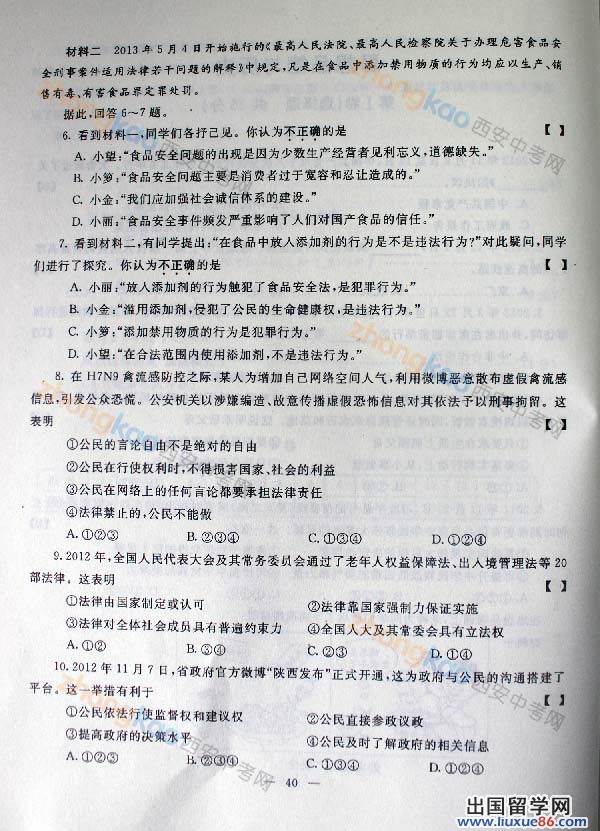 材料二 2013年5月4日开始施行的《最高人民法院、最高人民检察院关于办理危害食品安
全刑事案件适用法律若干问题的解释》中规定,凡是在食品中添加禁用物质的行为均应以生产、销
售有毒、有害食品罪定罪处罚。
据此,回答6~7题。
6. 看到材料一,同学们各抒己见。你认为不正确的是 【 】
A. 小望:“食品安全问题的出现是因为少数生产经营者见利忘义,道德缺失。”
B. 小箩:“食品安全问题主要是消费者过于宽容和忍让造成的。”
C. 小金:“我们应加强社会诚信体系的建设。”
D. 小丽:“食品安全事件频发严重影响了人们对国产食品的信任。”
7. 看到材料二,有同学提出:“在食品中放入添加剂的行为是不是违法行为?”对此疑问,同学
们进行了探究。你认为不正确的是 【 】
A. 小丽:“放入添加剂的行为触犯了食品安全法,是犯罪行为。”
B. 小金:“滥用添加剂,侵犯了公民的生命健康权,是违法行为。”
C. 小箩:“添加禁用物质的行为是犯罪行为。”
D. 小望:“在合法范围内使用添加剂,不是违法行为。”
8. 在H7N9禽流感防控之际,某人为增加自己网络空间人气,利用微博恶意散布虚假禽流感
信息,引发公众恐慌。公安机关以涉嫌编造、故意传播虚假恐怖信息对其依法予以刑事拘留。这
表明 【 】
①公民的言论自由不是绝对的自由
②公民在行使权利时,不得损害国家、社会的利益
③公民在网络上的任何言论都要承担法律责任
④法律禁止的,公民不能做
A. ①②③ B. ②③④ C. ①③④ D. ①②④
9. 2012年,全国人民代表大会及其常务委员会通过了老年人权益保障法、出入境管理法等20
部法律。这表明 【 】
①法律由国家制定或认可 ②法律靠国家强制力保证实施
③法律对全体社会成员具有普遍约束力 ④全国人大及其常委会具有立法权
A. ①② B. ①③ C. ②③ D. ①④
10. 2012年11月7日,省政府官方微博“陕西发布”正式开通,这为政府与公民的沟通搭建了
平台。这一举措有利于 【 】
①公民依法行使监督权和建议权 ②公民直接参政议政
③提高政府的决策水平 ④公民及时了解政府的相关信息
A. ①②③ B. ①②④ C. ①③④ D. ②③④
— 40 —
zhongkao西安中考网
zhongkao西安中考网
zhongkao西安中考网
zhongkao西安中考网
出国留学网
www.liuxue86.com